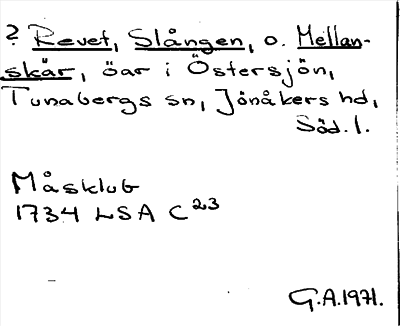 ? Revet, Slången, o. Mellan-
skär, öar i Östersjön,
Tunabergs sn, Jönåkers hd,
Söd. l.
Måsklub
1734 LSA C 23
G.A. 1971.